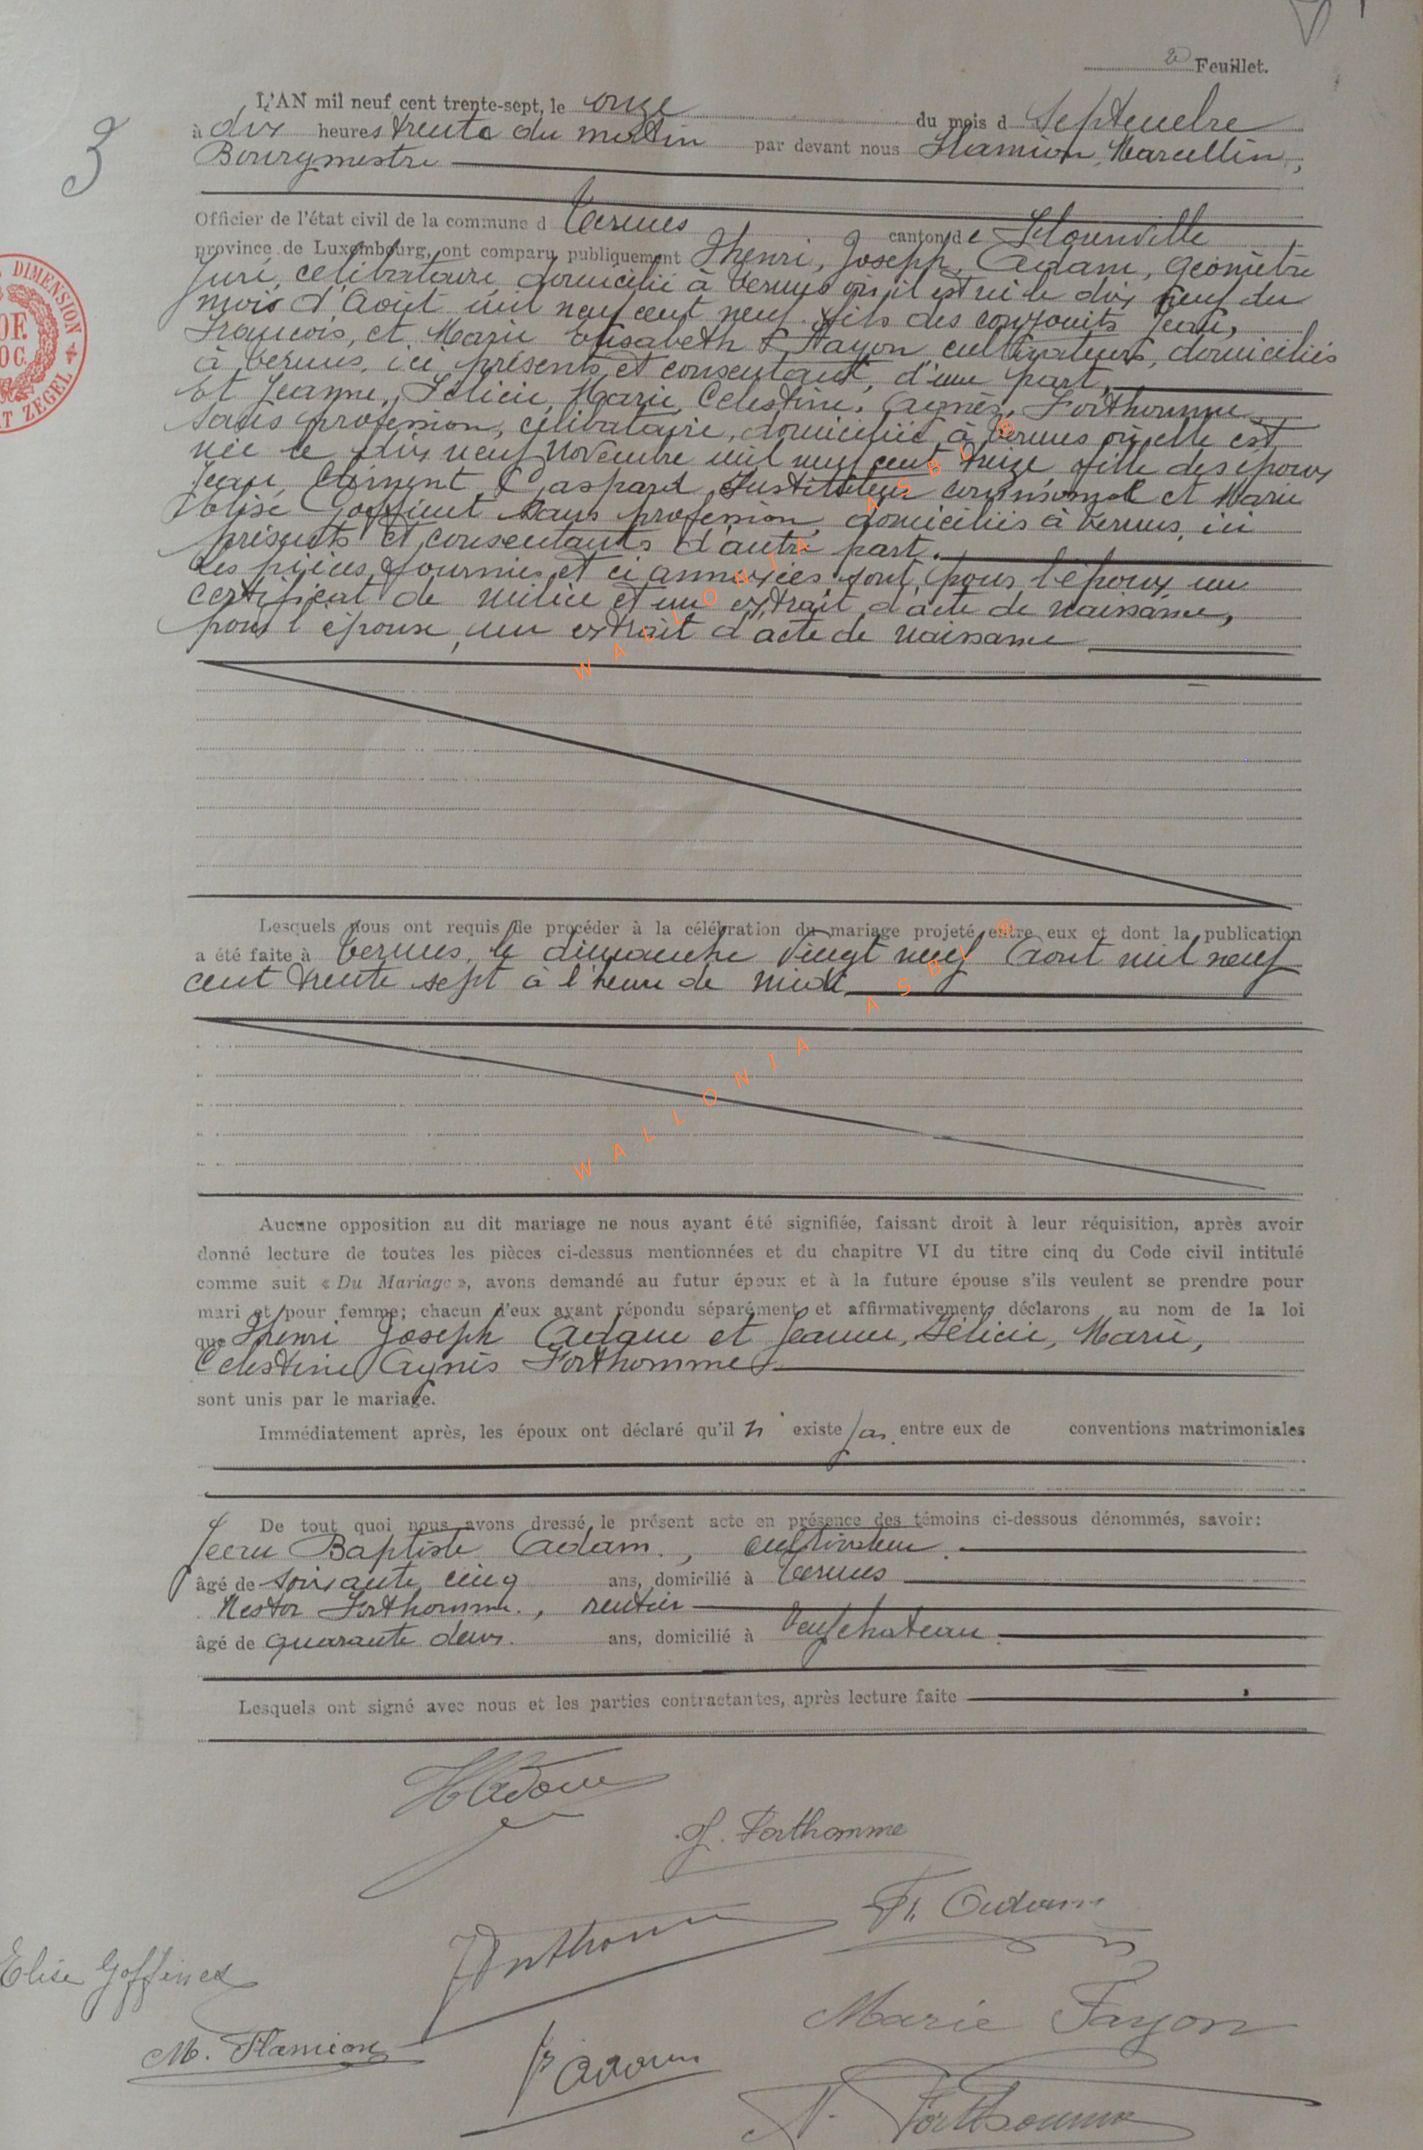 2e Feuillet.
3
L'AN mil neuf cent trente-sept, le onze du mois d Septembre
à dix heures trente du matin par devant nous Flamion, Marcellin,
Bourgmestre
Officier de l'état civil de la commune d Termes canton de Florenville
province de Luxembourg, ont comparu publiquement Henri, Joseph, Adam, géomètre
juré, célibataire, domicilié à Termes où il est né le dix neuf du
mois d'Août mil neuf cent neuf, fils des conjoints Jean,
François, et Marie Elisabeth Fayon cultivateurs, domiciliés
à Termes, ici présents et consentant, d'une part,
Et Jeanne, Félicie, Marie, Célestine, Agnès, Forthomme
sans profession, célibataire, domiciliée à Termes où elle est
née le dix neuf Novembre mil neuf cent treize, fille des époux
Jean, Clément, Gaspard, Instituteur communal et Marie
Elise Goffinet sans profession, domiciliés à Termes, ici
présents et consentants d'autre part.
Les pièces fournies et ci annexées sont, pour l'époux un
certificat de milice et un extrait d'acte de naissance,
pour l'épouse, un extrait d'acte de naissance
Lesquels nous ont requis de procéder à la célébration du mariage projeté entre eux et dont la publication
a été faite à Termes, le dimanche vingt neuf Août mil neuf
cent trente sept à l'heure de midi
Aucune opposition au dit mariage ne nous ayant été signifiée, faisant droit à leur réquisition, après avoir
donné lecture de toutes les pièces ci-dessus mentionnées et du chapitre VI du titre cinq du Code civil intitulé
comme suit « Du Mariage », avons demandé au futur époux et à la future épouse s'ils veulent se prendre pour
mari et pour femme; chacun d'eux ayant répondu séparément et affirmativement, déclarons au nom de la loi
que Henri Joseph Adam et Jeanne, Félicie, Marie,
Célestine Agnès Forthomme
sont unis par le mariage.
Immédiatement après, les époux ont déclaré qu'il n' existe pas entre eux de conventions matrimoniales
De tout quoi nous avons dressé le présent acte en présence des témoins ci-dessous dénommés, savoir:
Jean Baptiste Adam, cultivateur.
âgé de soixante cinq ans, domicilié à Termes
Nestor Forthomme, rentier
âgé de quarante deux ans, domicilié à Neufchateau.
Lesquels ont signé avec nous et les parties contractantes, après lecture faite
HAdam
J. Forthomme
Fr. Adam
JForthomme
Elise Goffinet
Marie Fayon
M. Flamion
Adam
N. Forthomme
DIMENSION
ZEGEL
WALLONIA ASBL ®
WALLONIA ASBL ®